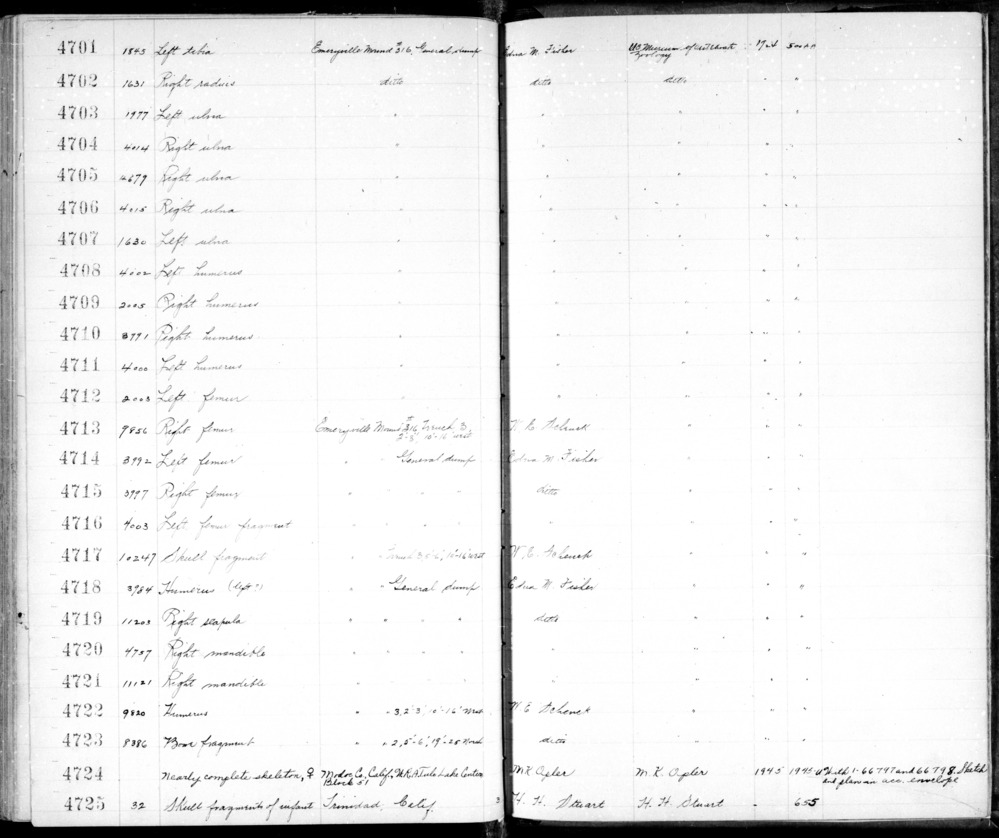 4701 1843 Left tibia Emeryville Mound #316, General dump Edna M. Fisher US Museum of Zoology " "
4702 1631 Right radius ditto ditto ditto " "
4703 1977 Left ulna " " " " "
4704 4014 Right ulna " " " " "
4705 2679 Right ulna " " " " "
4706 4015 Right ulna " " " " "
4707 1630 Left ulna " " " " "
4708 4002 Left humerus " " " " "
4709 2005 Right humerus " " " " "
4710 3991 Right humerus " " " " "
4711 4000 Left humerus " " " " "
4712 2003 Left femur " " " " "
4713 9856 Right femur Emeryville Mound #316, Trench 3, 2'-3', 10'-16' west W. E. Schenck " " "
4714 3992 Left femur " General dump Edna M. Fisher " " "
4715 3997 Right femur " " " " ditto " " "
4716 4003 Left femur fragment " " " " " " " "
4717 10247 Skull fragment " Trench 3, 10'-16' west W. E. Schenck " " "
4718 3984 Humerus (left?) " " General dump Edna M. Fisher " " "
4719 11203 Right scapula " " " " ditto " " "
4720 4737 Right mandible " " " " " " " "
4721 11121 Right mandible " " " " " " " "
4722 9820 Humerus " " 3, 2'-3', 10'-16' West W. E. Schenck " " "
4723 8386 Bone fragment " " 2, 5'-6', 19'-25' North ditto " " "
4724 Nearly complete skeleton, ♀ Modoc Co., Calif., W.R.A. Tule Lake Center Block 51 M. K. Opler M. K. Opler 1945 1945 With 1-66797 and 66798. Sketch and plan in acc. envelope
4725 32 Skull fragments of infant Trinidad, Calif. H. H. Stuart H. H. Stuart - 655